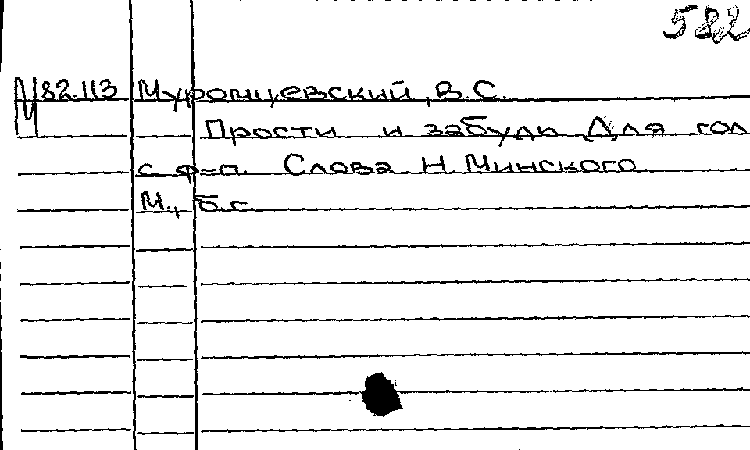 582
М82.113 Муромцевский, В.С.
Прости и забудь Для гол
с ф-п. Слова Н Минского
М., б.г.